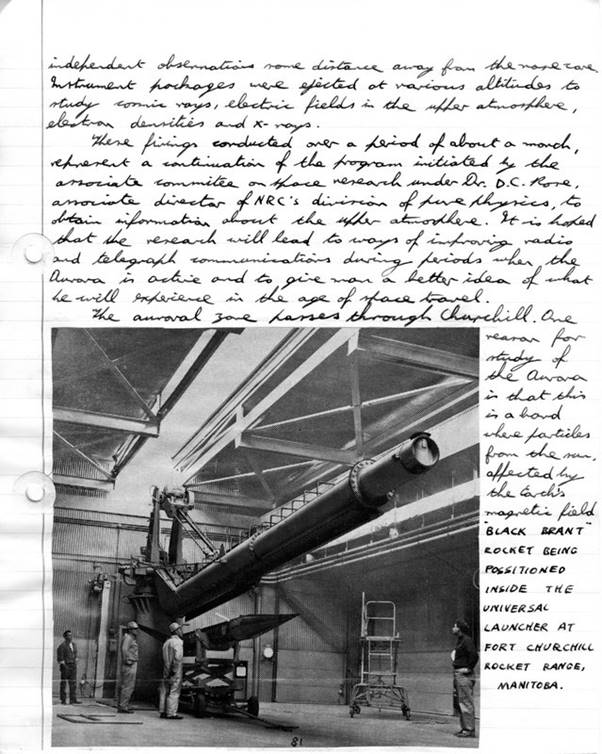 independent observations some distance away from the nose cone.
Instrument packages were ejected at various altitudes to
study cosmic rays, electric fields in the upper atmosphere,
electron densities and x-rays.
These firings conducted over a period of about a month,
represent a continuation of the program initiated by the
associate commitee on space research under Dr. D.C. Rose,
associate director of NRC's division of pure physics, to
obtain information about the upper atmosphere. It is hoped
that the research will lead to ways of improving radio
and telegraph communications during periods when the
Aurora is active and to give man a better idea of what
he will experience in the age of space travel.
The auroral zone passes through Churchill. One
reason for
study of
the Aurora
is that this
is a band
where particles
from the sun,
affected by
the Earth's
magnetic field
"BLACK BRANT"
ROCKET BEING
POSSITIONED
INSIDE THE
UNIVERSAL
LAUNCHER AT
FORT CHURCHILL
ROCKET RANGE,
MANITOBA.
81